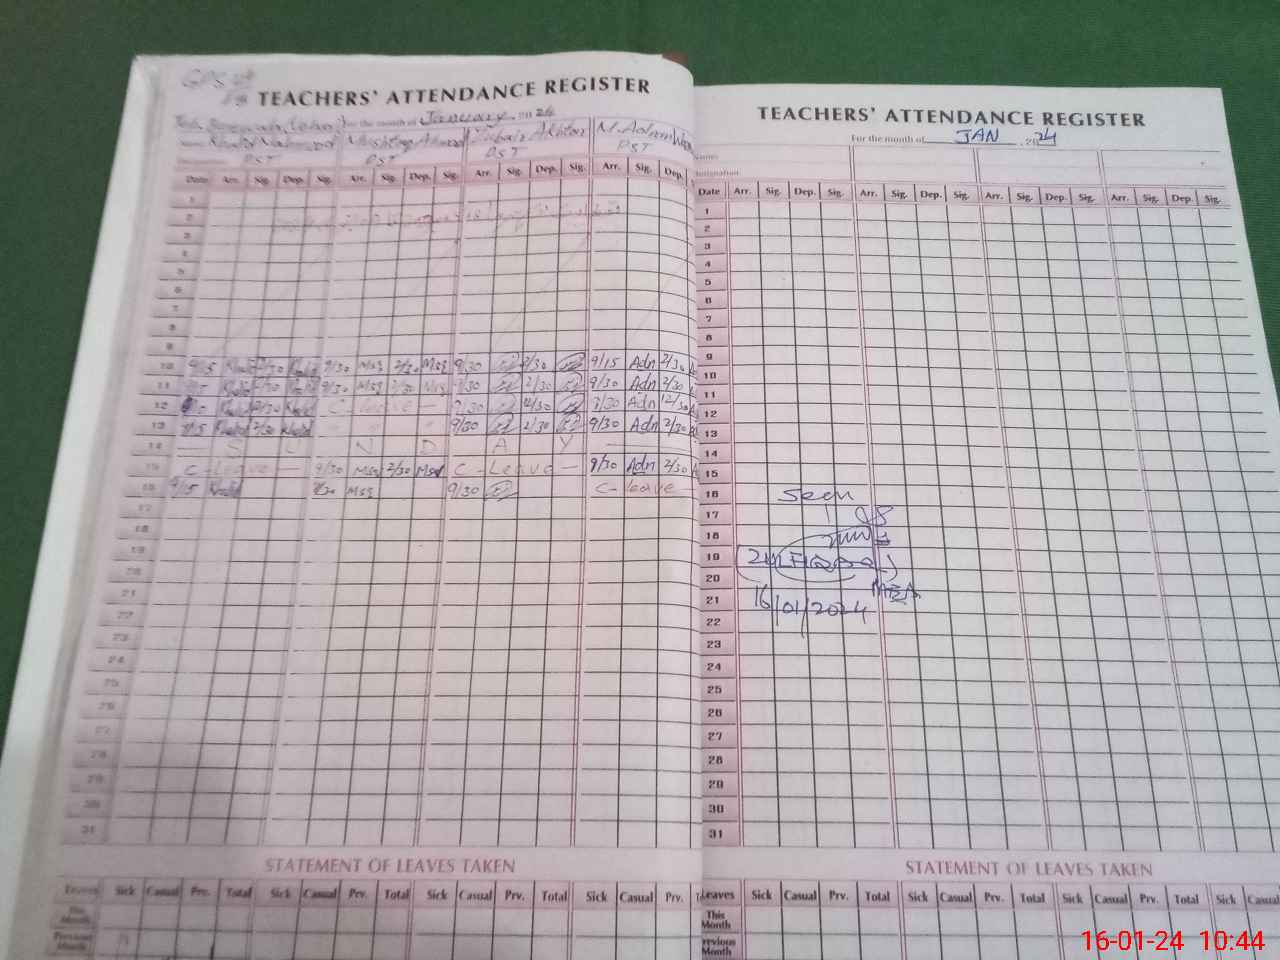 GPS
TEACHERS' ATTENDANCE REGISTER
For the month of January 2024
Khalid Mahmood Mushtaq Ahmad Zubair Akhtar M. Adnan
PST PST PST PST
Date Arr. Sig. Dep. Sig. Arr. Sig. Dep. Sig. Arr. Sig. Dep. Sig. Arr. Sig. Dep.
1
2
3
4
5
6
7
8
9
10 9/15 Khalid 2/30 Khalid 9/30 Msq 2/30 Msq 9/30 2/30 9/15 Adn 2/30
11 Khalid 2/30 Khalid 9/30 Msq 2/30 Msq 9/30 2/30 9/30 Adn 2/30
12 Khalid 12/30 Khalid C-Leave - 9/30 12/30 9/30 Adn 12/30
13 9/15 Khalid 2/30 Khalid 9/30 2/30 9/30 Adn 2/30
14 — S U N D A Y —
15 C-Leave — 9/30 Msq 2/30 Msq C-Leave — 9/30 Adn 2/30
16 9/15 Khalid 9/30 Msq 9/30 C-leave
17
18
19
20
21
22
23
24
25
26
27
28
29
30
31
STATEMENT OF LEAVES TAKEN
Leaves Sick Casual Prv. Total Sick Casual Prv. Total Sick Casual Prv. Total Sick Casual Prv.
This Month
Previous Month
TEACHERS' ATTENDANCE REGISTER
For the month of JAN 2024
Names
Designation
Date Arr. Sig. Dep. Sig. Arr. Sig. Dep. Sig. Arr. Sig. Dep. Sig. Arr. Sig. Dep. Sig.
1
2
3
4
5
6
7
8
9
10
11
12
13
14
15
16 Seen
17
18
19
20
21 16/01/2024
22
23
24
25
26
27
28
29
30
31
STATEMENT OF LEAVES TAKEN
Leaves Sick Casual Prv. Total Sick Casual Prv. Total Sick Casual Prv. Total Sick Casual
This Month
Previous Month
16-01-24 10:44